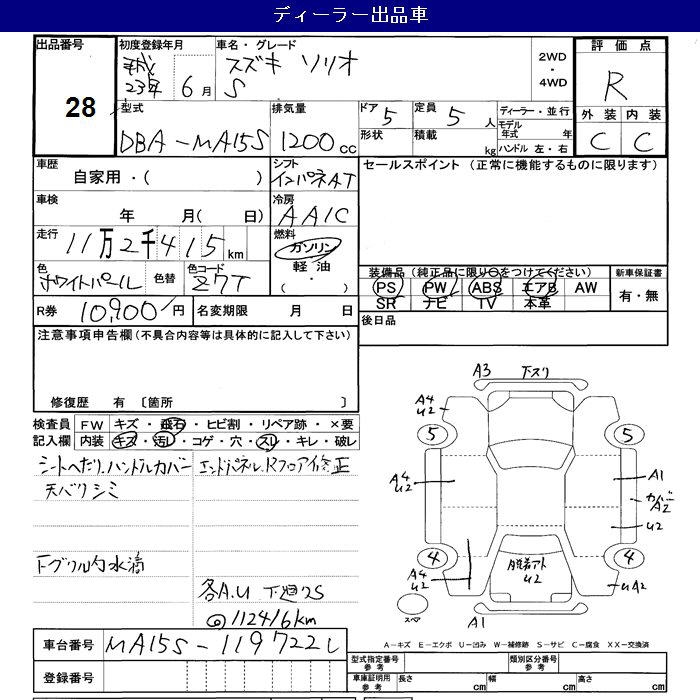 ディーラー出品車
出品番号
28
初度登録年月
平成
23年 6月
車名・グレード
スズキ ソリオ
S
2WD
・
4WD
評価点
R
外装 内装
C C
型式
DBA-MA15S
排気量
1200cc
ドア 5
定員 5人
形状
積載 kg
ディーラー・並行
モデル年式 年
ハンドル 左・右
車歴
自家用・( )
シフト
インパネAT
セールスポイント (正常に機能するものに限ります)
車検
年 月( 日)
冷房
AAIC
走行
11万2千415km
燃料
ガソリン
軽油
( ・ )
色
ホワイトパール
色替
色コード
Z7T
装備品(純正品に限り○をつけてください)
PS PW ABS エアB AW
SR ナビ TV 本革
新車保証書
有・無
R券 10,900円
名変期限 月 日
後日品
注意事項申告欄(不具合内容等は具体的に記入して下さい)
修復歴 有 〔箇所 〕
検査員記入欄
FW キズ・飛石・ヒビ割・リペア跡・×要
内装 キズ・汚レ・コゲ・穴・スリ・キレ・破レ
シートへたり、ハンドルカバー
天バリシミ
エンドパネル、Rフロア修正
下グリル内水滴
各A.U 下廻りS
@112416km
A3 下スリ
A4
U2
5
5
A4
U2
A1
カバー
A2
U2
4
4
A4
U2
脱着アト
U2
UA2
スペア
A1
車台番号 MA15S-119722 L
登録番号
A-キズ E-エクボ U-凹み W-補修跡 S-サビ C-腐食 XX-交換済
型式指定番号
参考
類別区分番号
参考
車庫証明用
参考
長さ cm
幅 cm
高さ cm